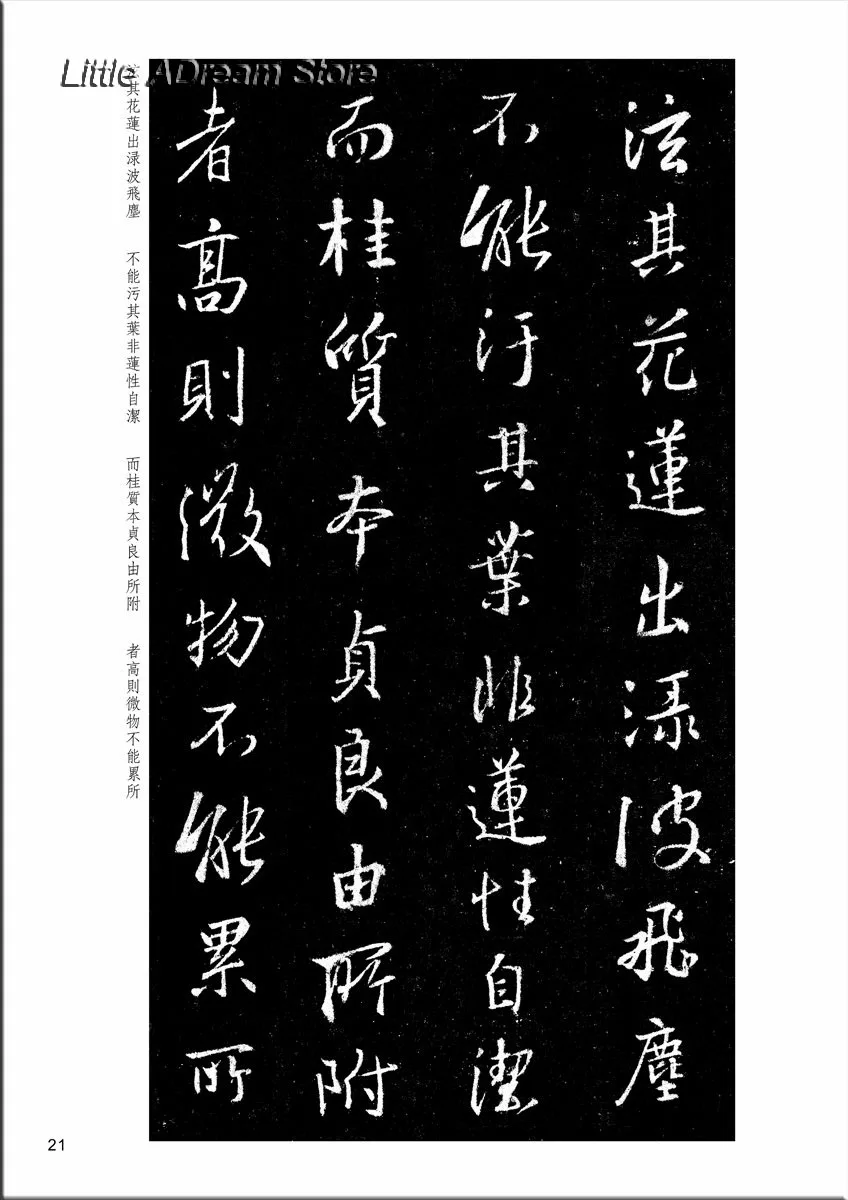 Little ADream Store
泫其花蓮出渌波飛塵
不能汙其葉非蓮性自潔
而桂質本貞良由所附
者高則微物不能累所
泫其花蓮出渌波飛塵 不能污其葉非蓮性自潔 而桂質本貞良由所附 者高則微物不能累所
21